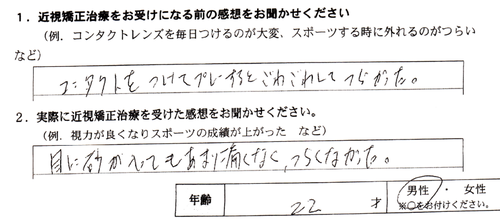 1．近視矯正治療をお受けになる前の感想をお聞かせください
（例．コンタクトレンズを毎日つけるのが大変、スポーツする時に外れるのがつらい
など）
コンタクトをつけてプレーするとごわごわしてつらかった。
2．実際に近視矯正治療を受けた感想をお聞かせください。
（例．視力が良くなりスポーツの成績が上がった　など）
目に砂が入ってもあまり痛くなく、つらくなかった。
年齢　22　才　男性　・　女性
※○をお付けください。